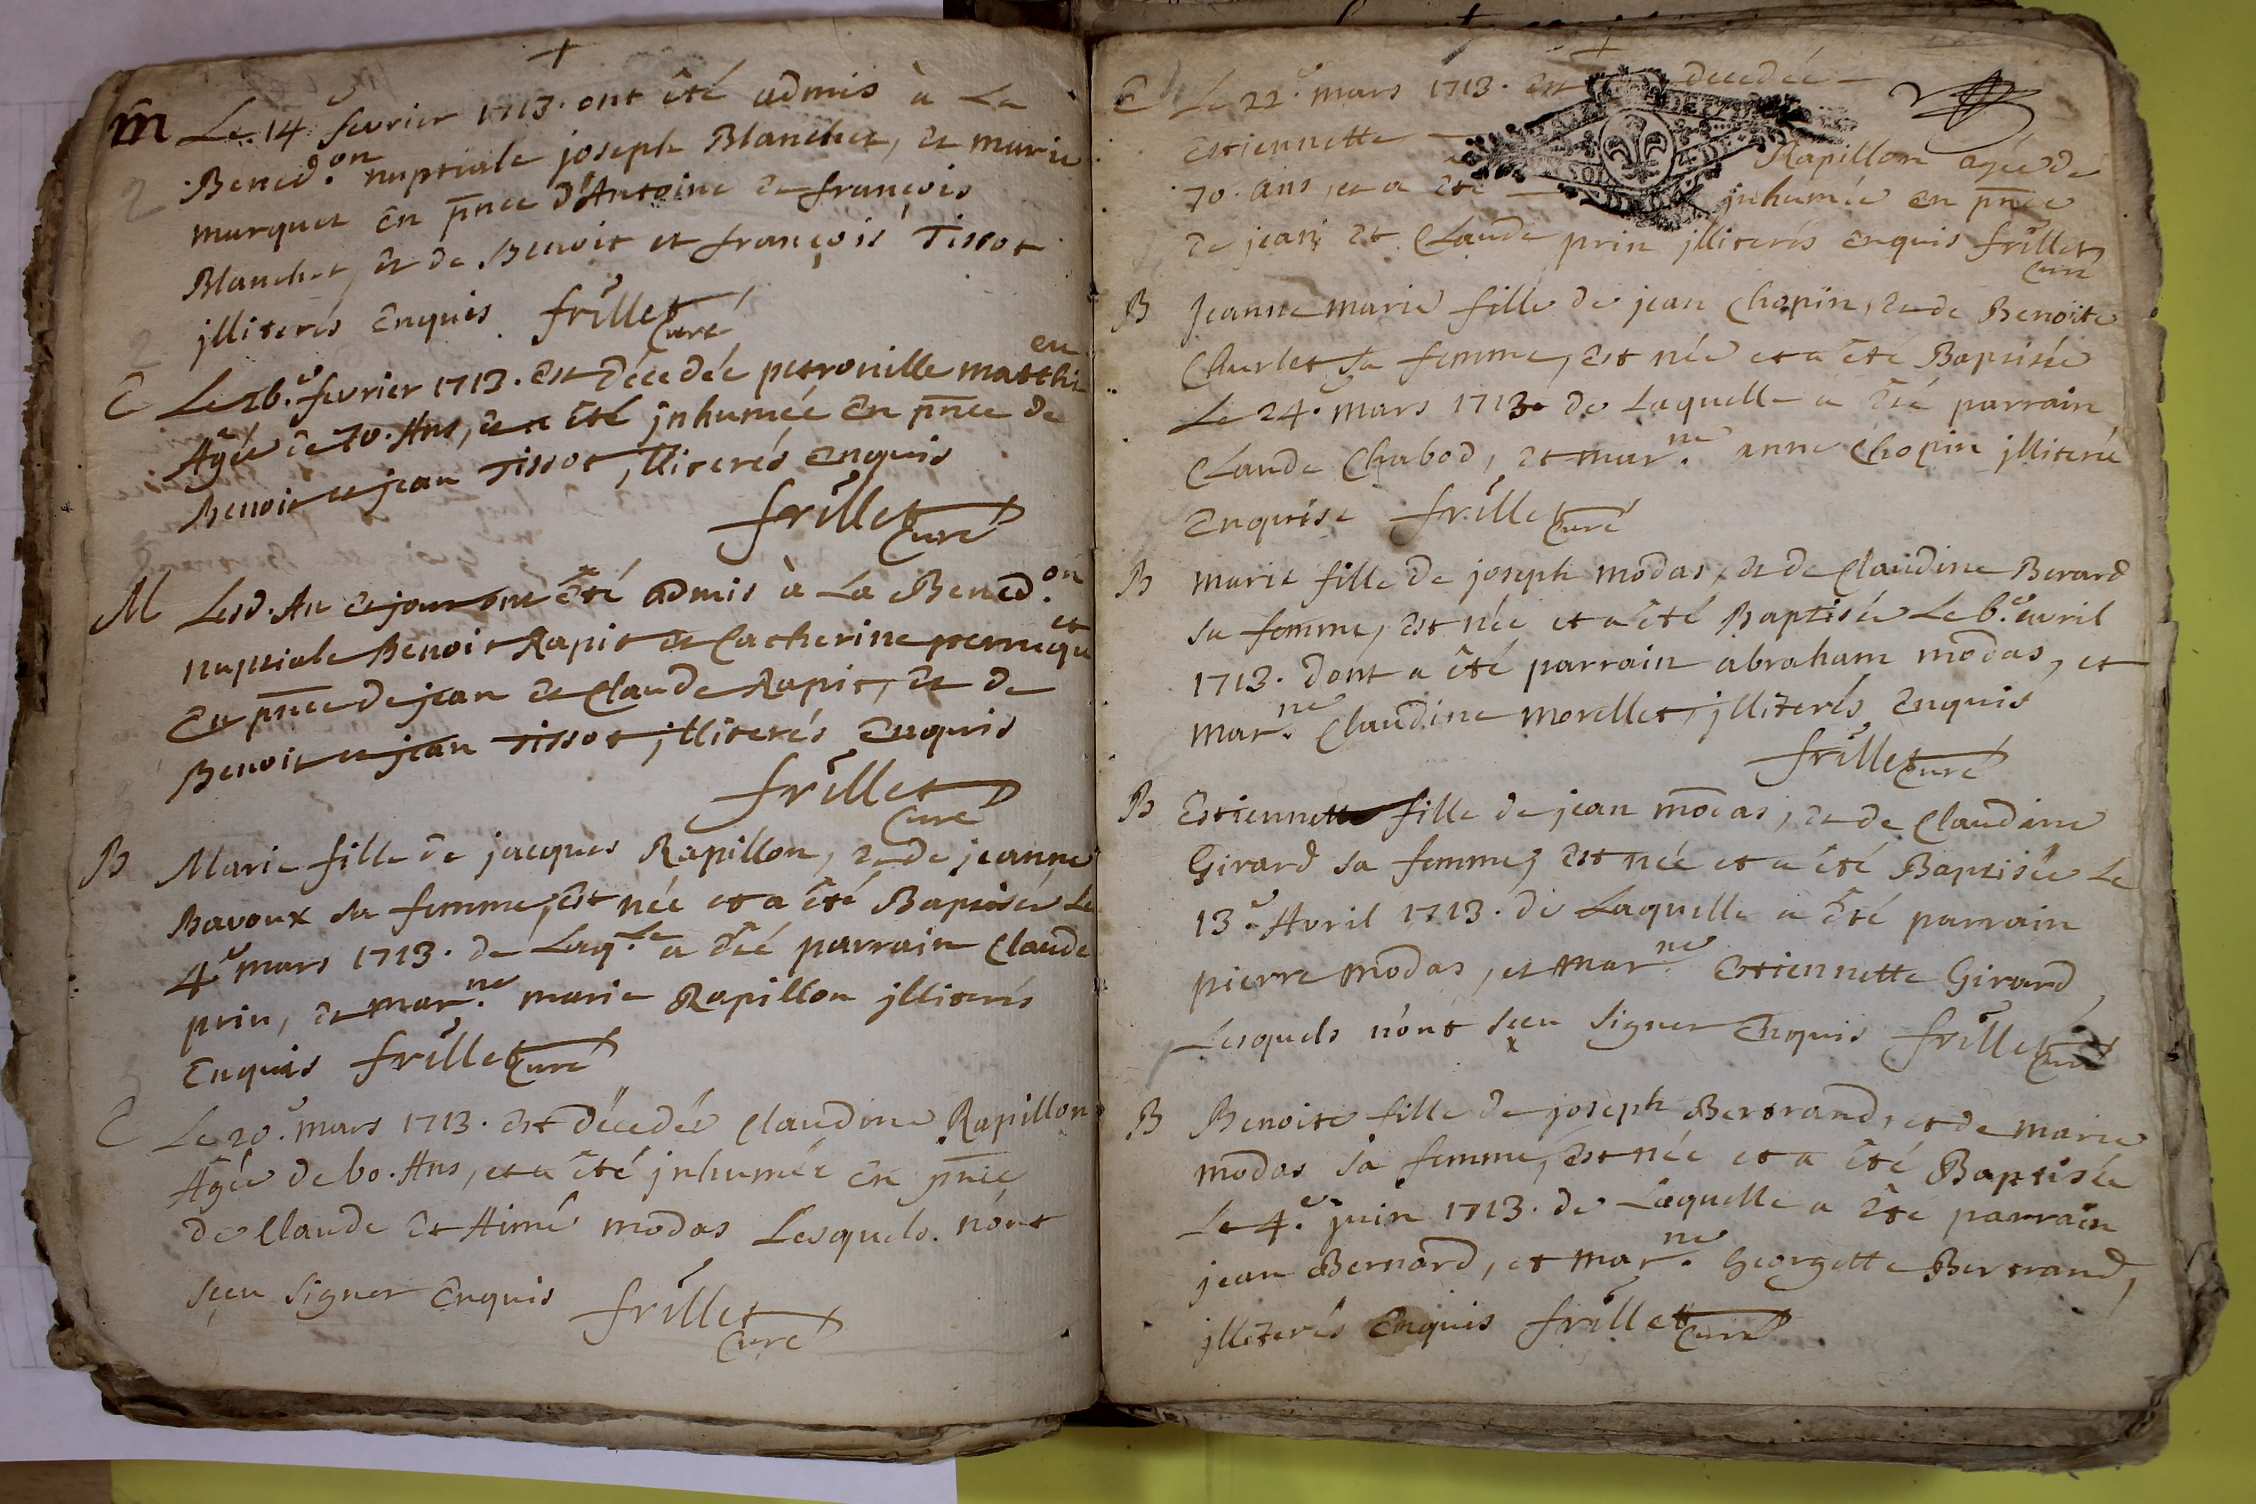 +
M Le 14.e fevrier 1713. ont êté admis à La
Bened.on nuptiale joseph Blanchet, et marie
marquet en pnce d'Antoine et françois
Blanchet, et de Benoit et françois Tissot
jlliterés Enquis frillet Curé
C Le 26.e fevrier 1713. est décedée petronille matthieu
Agée de 70. Ans, et a êté jnhumée En pnce de
Benoit et jean Tissot, jlliterés Enquis
frillet Curé
M Lesd. An et jour ont êté admis à La Bened.on
nuptiale Benoit Rapit et Catherine
en pnce de jean et Claude Rapit, et de
Benoit et jean Tissot, jlliterés Enquis
frillet Curé
B Marie fille de jacques Rapillon, et de jeanne
Bavoux sa femme, est née et a êté Baptisée Le
4.e mars 1713. de Laq.le a êté parrain Claude
prin, et mar.ne marie Rapillon jlliterés
Enquis frillet Curé
C Le 20.e mars 1713. est décedée Claudine Rapillon
Agée de 60. Ans, et a êté jnhumée En pnce
de Claude et Aimé modas Lesquels. n'ont
sçeu signer Enquis frillet Curé
C Le 22.e mars 1713. est decedée
estiennette Rapillon agée de
70. ans, et a êté jnhumée en pnce
de jean et Claude prin jlliterés Enquis frillet Curé
B Jeanne marie fille de jean Chopin, et de Benoite
Charlet sa femme, est née et a êté Baptisée
Le 24. mars 1713 de Laquelle a êté parrain
Claude Chabod, et mar.ne anne Chopin jlliterée
Enquise frillet Curé
B marie fille de joseph modas, et de Claudine Berard
sa femme, est née et a êté Baptisée Le 6.e avril
1713. dont a êté parrain abraham modas, et
mar.ne Claudine morellet, jlliterés Enquis
frillet Curé
B Estiennette fille de jean modas, et de Claudine
Girard sa femme, est née et a êté Baptisée Le
13.e Avril 1713. de Laquelle a êté parrain
pierre modas, et mar.ne Estiennette Girard,
Lesquels n'ont sçeu signer Enquis frillet Curé
B Benoite fille de joseph Bertrand, et de marie
modas sa femme, est née et a êté Baptisée
Le 4.e juin 1713. de Laquelle a êté parrain
jean Bernard, et mar.ne Georgette Bertrand,
jlliterés Enquis frillet Curé